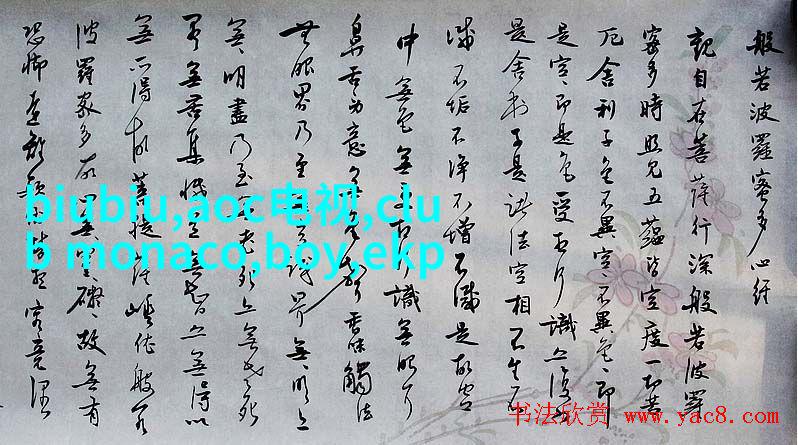 般若波羅蜜多心經
觀自在菩薩行深般若波羅
蜜多時照見五蘊皆空度一切苦
厄舍利子色不異空不異色即
是空即是色受想行識亦復如
是舍利子是諸法空相不生不
滅不垢不淨不增不減是故空
中無色無受想行識無眼耳
鼻舌身意無色聲香味觸法
無眼界乃至識界無明亦
無明盡乃至老死亦無老死
無苦集滅道無智亦無得以
無所得故菩提薩埵依般若
波羅蜜多故無罣礙故無有
恐怖遠離顛倒夢想究竟涅
biubiu,aoc电视,clu
b monaco,boy,ekp
书法欣赏 www.yac8.com